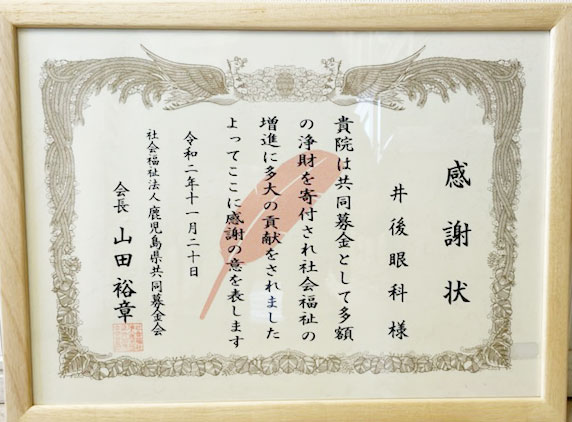 感謝状
井後眼科様
貴院は共同募金として多額
の浄財を寄付され社会福祉の
増進に多大の貢献をされました
よってここに感謝の意を表します
令和二年十一月二十日
社会福祉法人鹿児島県共同募金会
会長 山田裕章